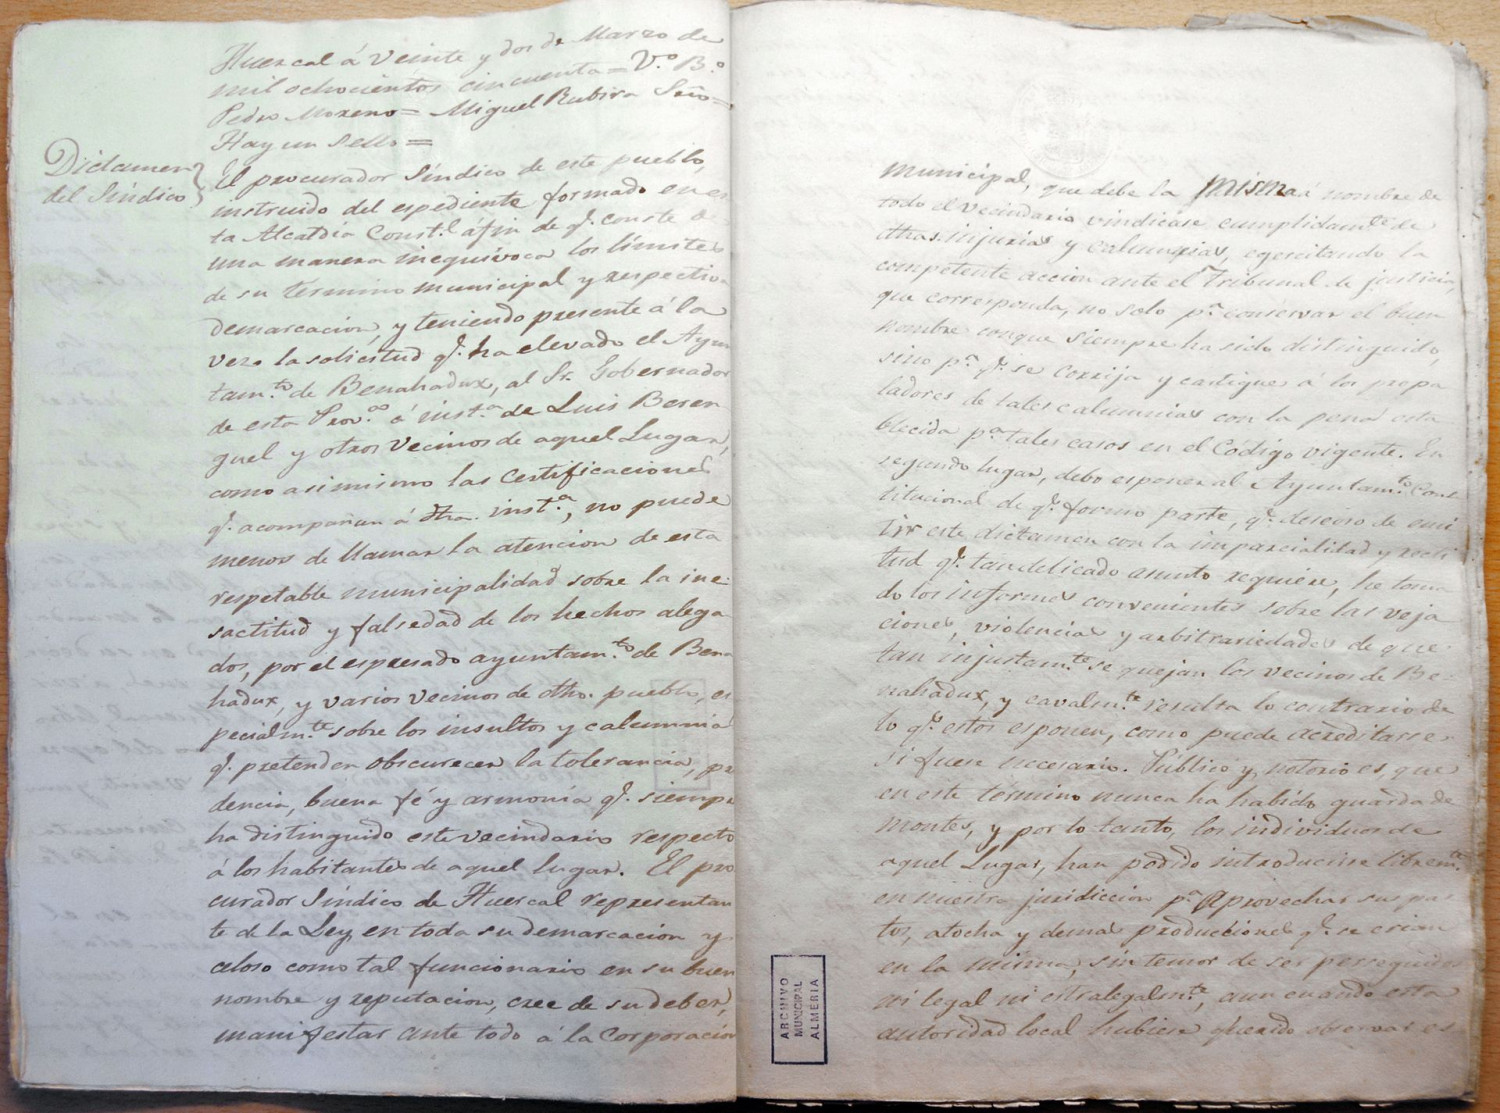 Huercal á Veinte y dos de Marzo de
mil ochocientos cincuenta = V.º B.º
Pedro Moreno = Miguel Rubira Srio =
Hay un Sello =
Dictamen
del Síndico
El procurador Síndico de este pueblo,
instruido del espediente formado en es
ta Alcaldía Const.l áfin de q.e conste de
una manera inequivoca los límites
de su término municipal y respectiva
demarcacion, y teniendo presente á la
vez la solicitud q.e ha elevado el Ayun
tam.to de Benahadux, al Sr. Gobernador
de esta Prov.a á inst.a de Luis Beren
guel y otros Vecinos de aquel Lugar,
como asimismo las Certificaciones
q.e acompañan á dha. inst.a, no puede
menos de llamar la atencion de esta
respetable municipalidad sobre la ine
sactitud y falsedad de los hechos alega
dos, por el espresado ayuntam.to de Bena
hadux, y varios vecinos de dho. pueblo, es
pecialm.te sobre los insultos y calumnia
q.e pretenden obscurecer la tolerancia, pru
dencia, buena fé y armonía q.e siempre
ha distinguido este vecindario respecto
á los habitantes de aquel lugar. El pro
curador Síndico de Huercal representan
te de la Ley, en toda su demarcacion y
celoso como tal funcionario en su buen
nombre y reputacion, cree de su deber,
manifestar ante todo á la Corporacion
municipal, que debe la misma á nombre de
todo el Vecindario vindicarse cumplidam.te de
dhas. injurias y calumnias, egercitando la
competente accion ante el Tribunal de justicia,
que corresponda, no solo p.a conservar el buen
nombre conque siempre ha sido distinguido,
sino p.a q.e se corrija y castigue á los propa
ladores de tales calumnias con la pena esta
blecida p.a tales casos en el Código vigente. En
segundo lugar, debo esponer al Ayuntam.to Cons
titucional de q.e formo parte, q.e deseoso de emi
tir este dictamen con la imparcialidad y recti
tud q.e tan delicado asunto requiere, he toma
do los informes convenientes sobre las veja
ciones, violencias y arbitrariedades de que
tan injustam.te se quejan los vecinos de Be
nahadux, y cavalm.te resulta lo contrario de
lo q.e estos esponen, como puede acreditarse
si fuese necesario. Público y notorio es, que
en este término nunca ha habido guarda de
montes, y por lo tanto, los individuos de
aquel Lugar, han podido introducirse librem.te
en nuestra juridiccion p.a aprovechar sus pas
tos, atocha y demas producciones q.e se crian
en la misma, sin temor de ser perseguidos
ni legal ni estralegalm.te, aun cuando esta
autoridad local hubiese querido observar es
ARCHIVO
MUNICIPAL
ALMERIA